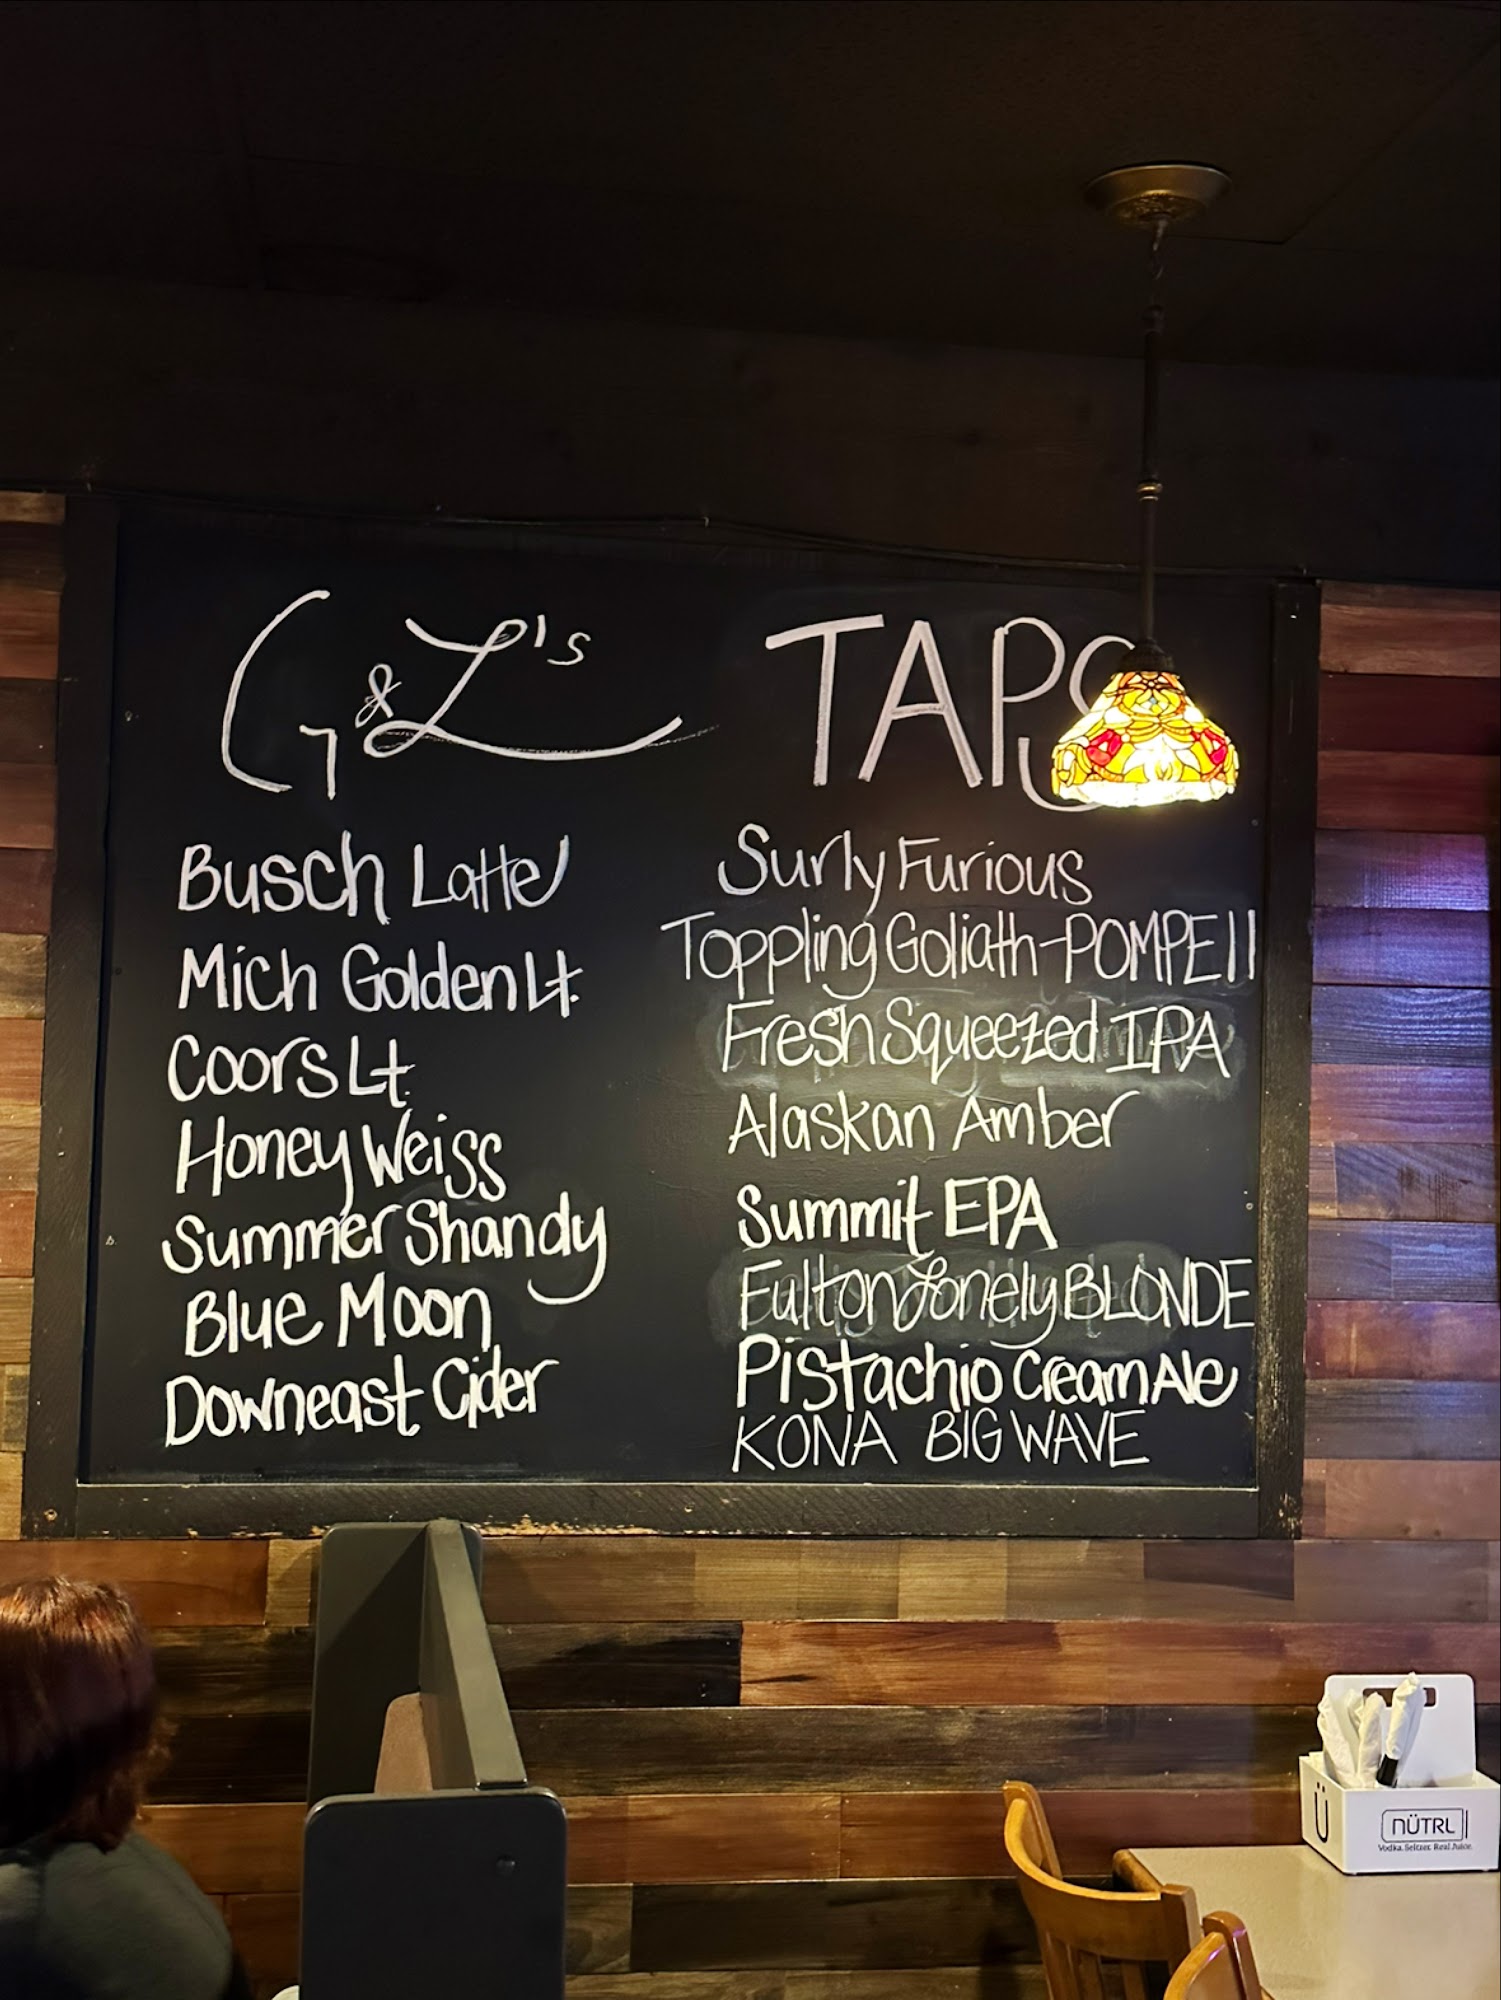 G&L's TAPS
Busch Latte
Mich Golden Lt.
Coors Lt.
Honey Weiss
Summer Shandy
Blue Moon
Downeast Cider
Surly Furious
Toppling Goliath-POMPEII
Fresh Squeezed IPA
Alaskan Amber
Summit EPA
Fulton Lonely BLONDE
Pistachio Cream Ale
KONA BIG WAVE
Ü
NÜTRL
Vodka. Seltzer. Real Juice.